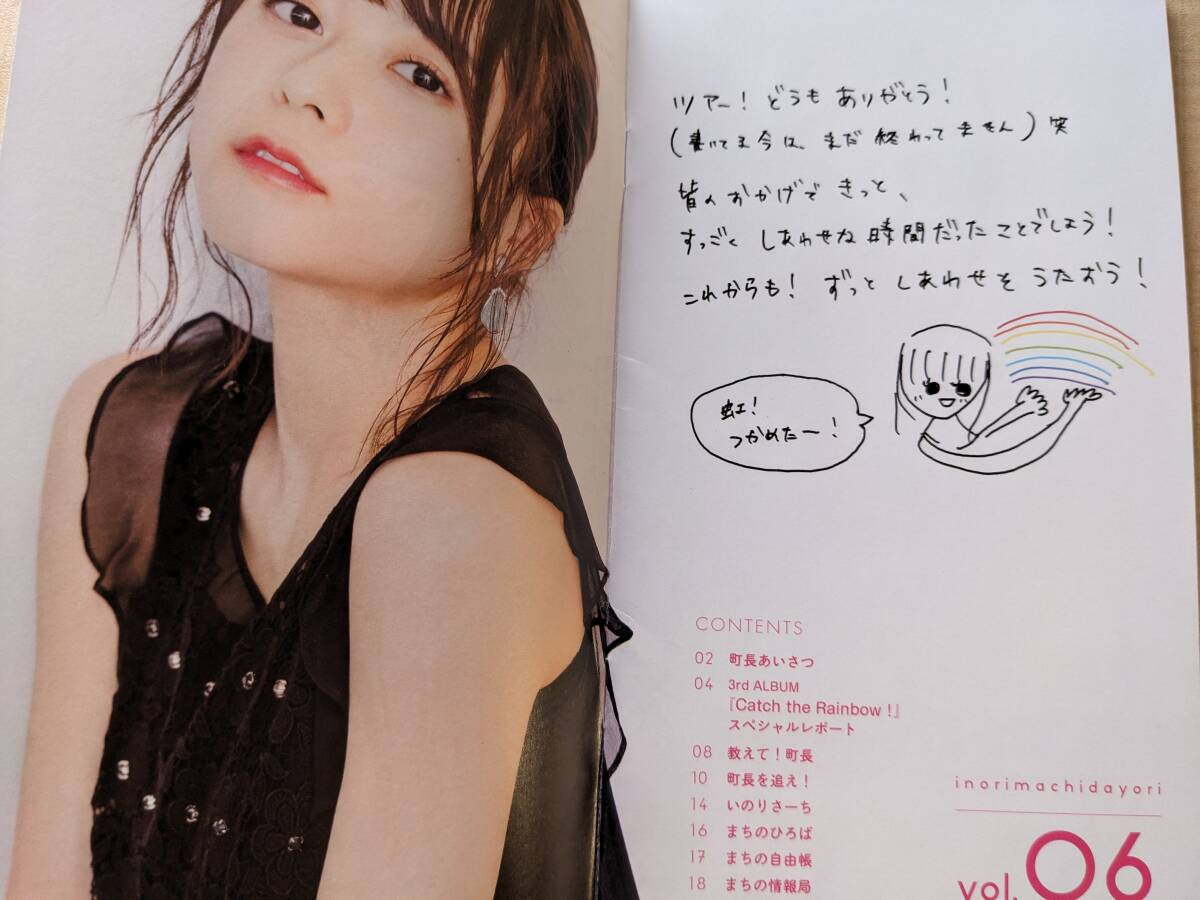 ツアー！どうもありがとう！
（書いてる今は、まだ終わってません）笑
皆のおかげできっと、
すっごくしあわせな時間だったことでしょう！
これからも！ずっとしあわせをうたおう！
虹！
つかめたー！
CONTENTS
02 町長あいさつ
04 3rd ALBUM
『Catch the Rainbow !』
スペシャルレポート
08 教えて！町長
10 町長を追え！
14 いのりさーち
16 まちのひろば
17 まちの自由帳
18 まちの情報局
inorimachidayori
vol.06